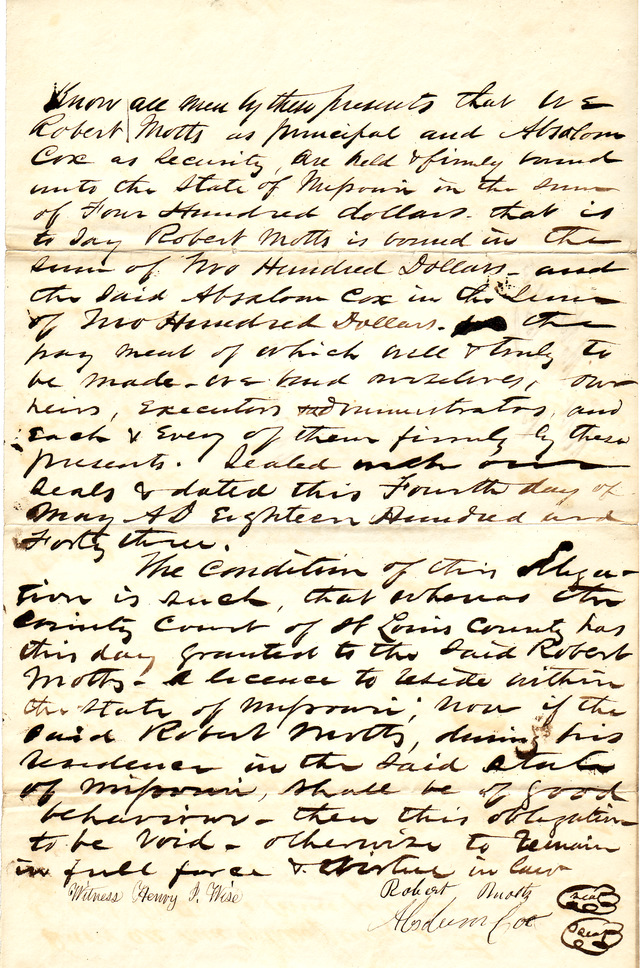 Know all men by these presents that We
Robert Motts as principal and Absalom
Cox as Security, are held & firmly bound
unto the State of Missouri in the sum
of Four Hundred dollars. that is
to say Robert Motts is bound in the
sum of Two Hundred Dollars - and
the said Absalom Cox in the sum
of Two Hundred Dollars - the
pay ment of which well & truly to
be made - We bind ourselves, our
heirs, Executors administrators, and
each & Every of them firmly by these
presents. Sealed with our
seals & dated this Fourth day of
May AD Eighteen Hundred and
Forty three.
The Condition of this Obliga-
tion is such, that whereas the
County Court of St Louis County has
this day granted to the said Robert
Motts - a licence to reside within
the State of Missouri; Now if the
said Robert Motts, during his
residence in the said State
of Missouri, shall be of good
behaviour - then this obligation
to be void - otherwise to remain
in full force & virtue in law
Witness Henry J. Wise Robert Motts seal
Absalom Cox seal